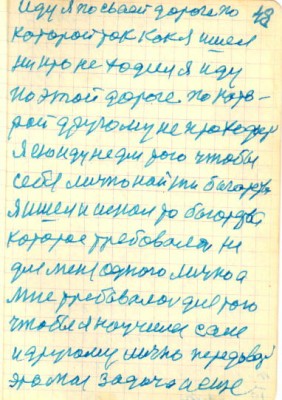 иду я по своей дороге по
которой так как я ишел
никто не ходил я иду
по этой дороге по кото-
рой другому не проходил
я сюиду не для того чтобы
себе лично найти богатства
я ишел и искал то богатства
которое требовалося не
для меня одного лично а
мне требовалося для того
чтобы я научился сам
и другому лично передовал
эта моя задача и еще